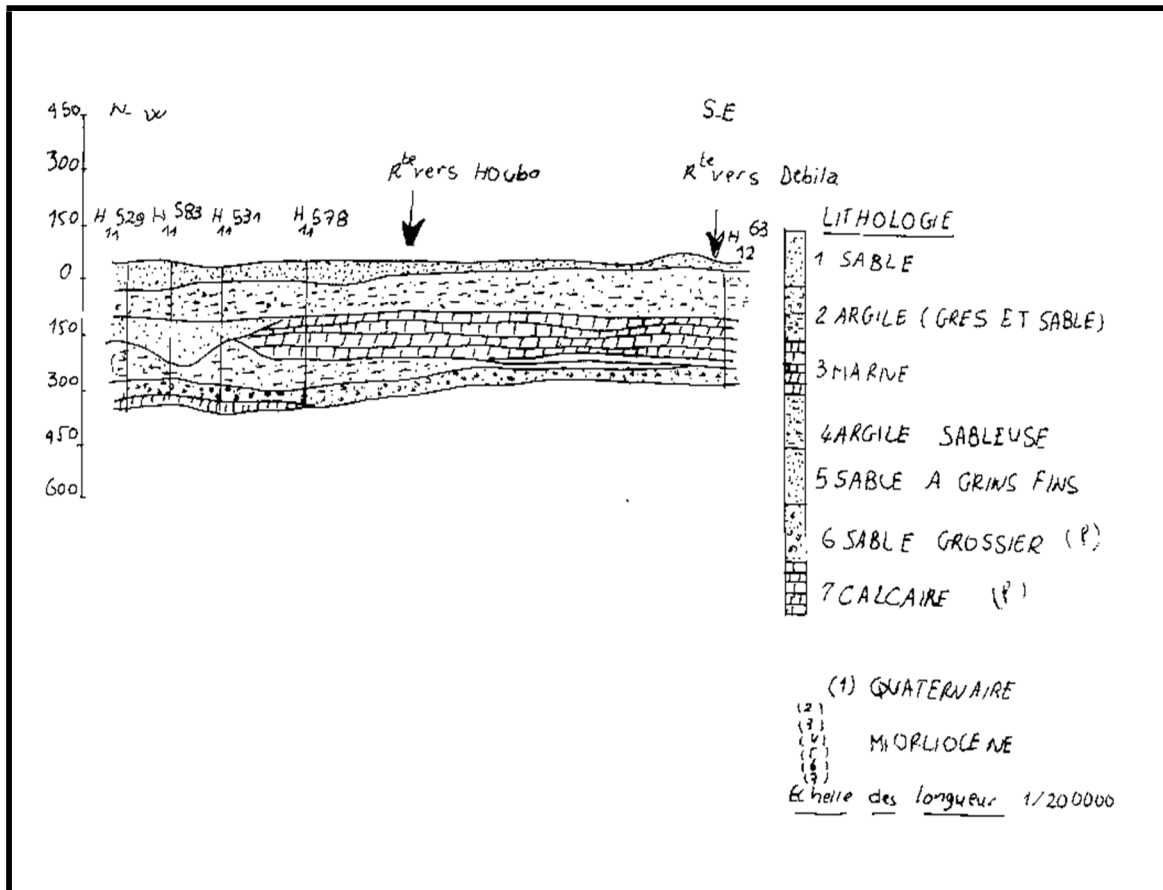 450
N-W
S-E
300
Rte vers Houba
Rte vers Debila
150
H 11 529
H 11 583
H 11 531
H 11 578
H 12 63
0
150
300
450
600
LITHOLOGIE
1 SABLE
2 ARGILE (GRES ET SABLE)
3 MARNE
4 ARGILE SABLEUSE
5 SABLE A GRINS FINS
6 SABLE GROSSIER (P)
7 CALCAIRE (P)
(1) QUATERNAIRE
(2)
(3)
(4)
(5)
(6)
(7)
MIORLIOCENE
Echelle des longueur 1/200000